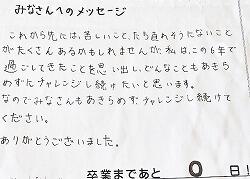 みなさんへのメッセージ
これから先には、苦しいこと、たち直れそうにないこと
がたくさんあるかもしれませんが、私は、この6年で
過ごしてきたことを思い出し、どんなこともあきら
めずにチャレンジし続けたいと思います。
なのでみなさんもあきらめず、チャレンジし続けて
ください。
ありがとうございました。
卒業まであと 0 日!